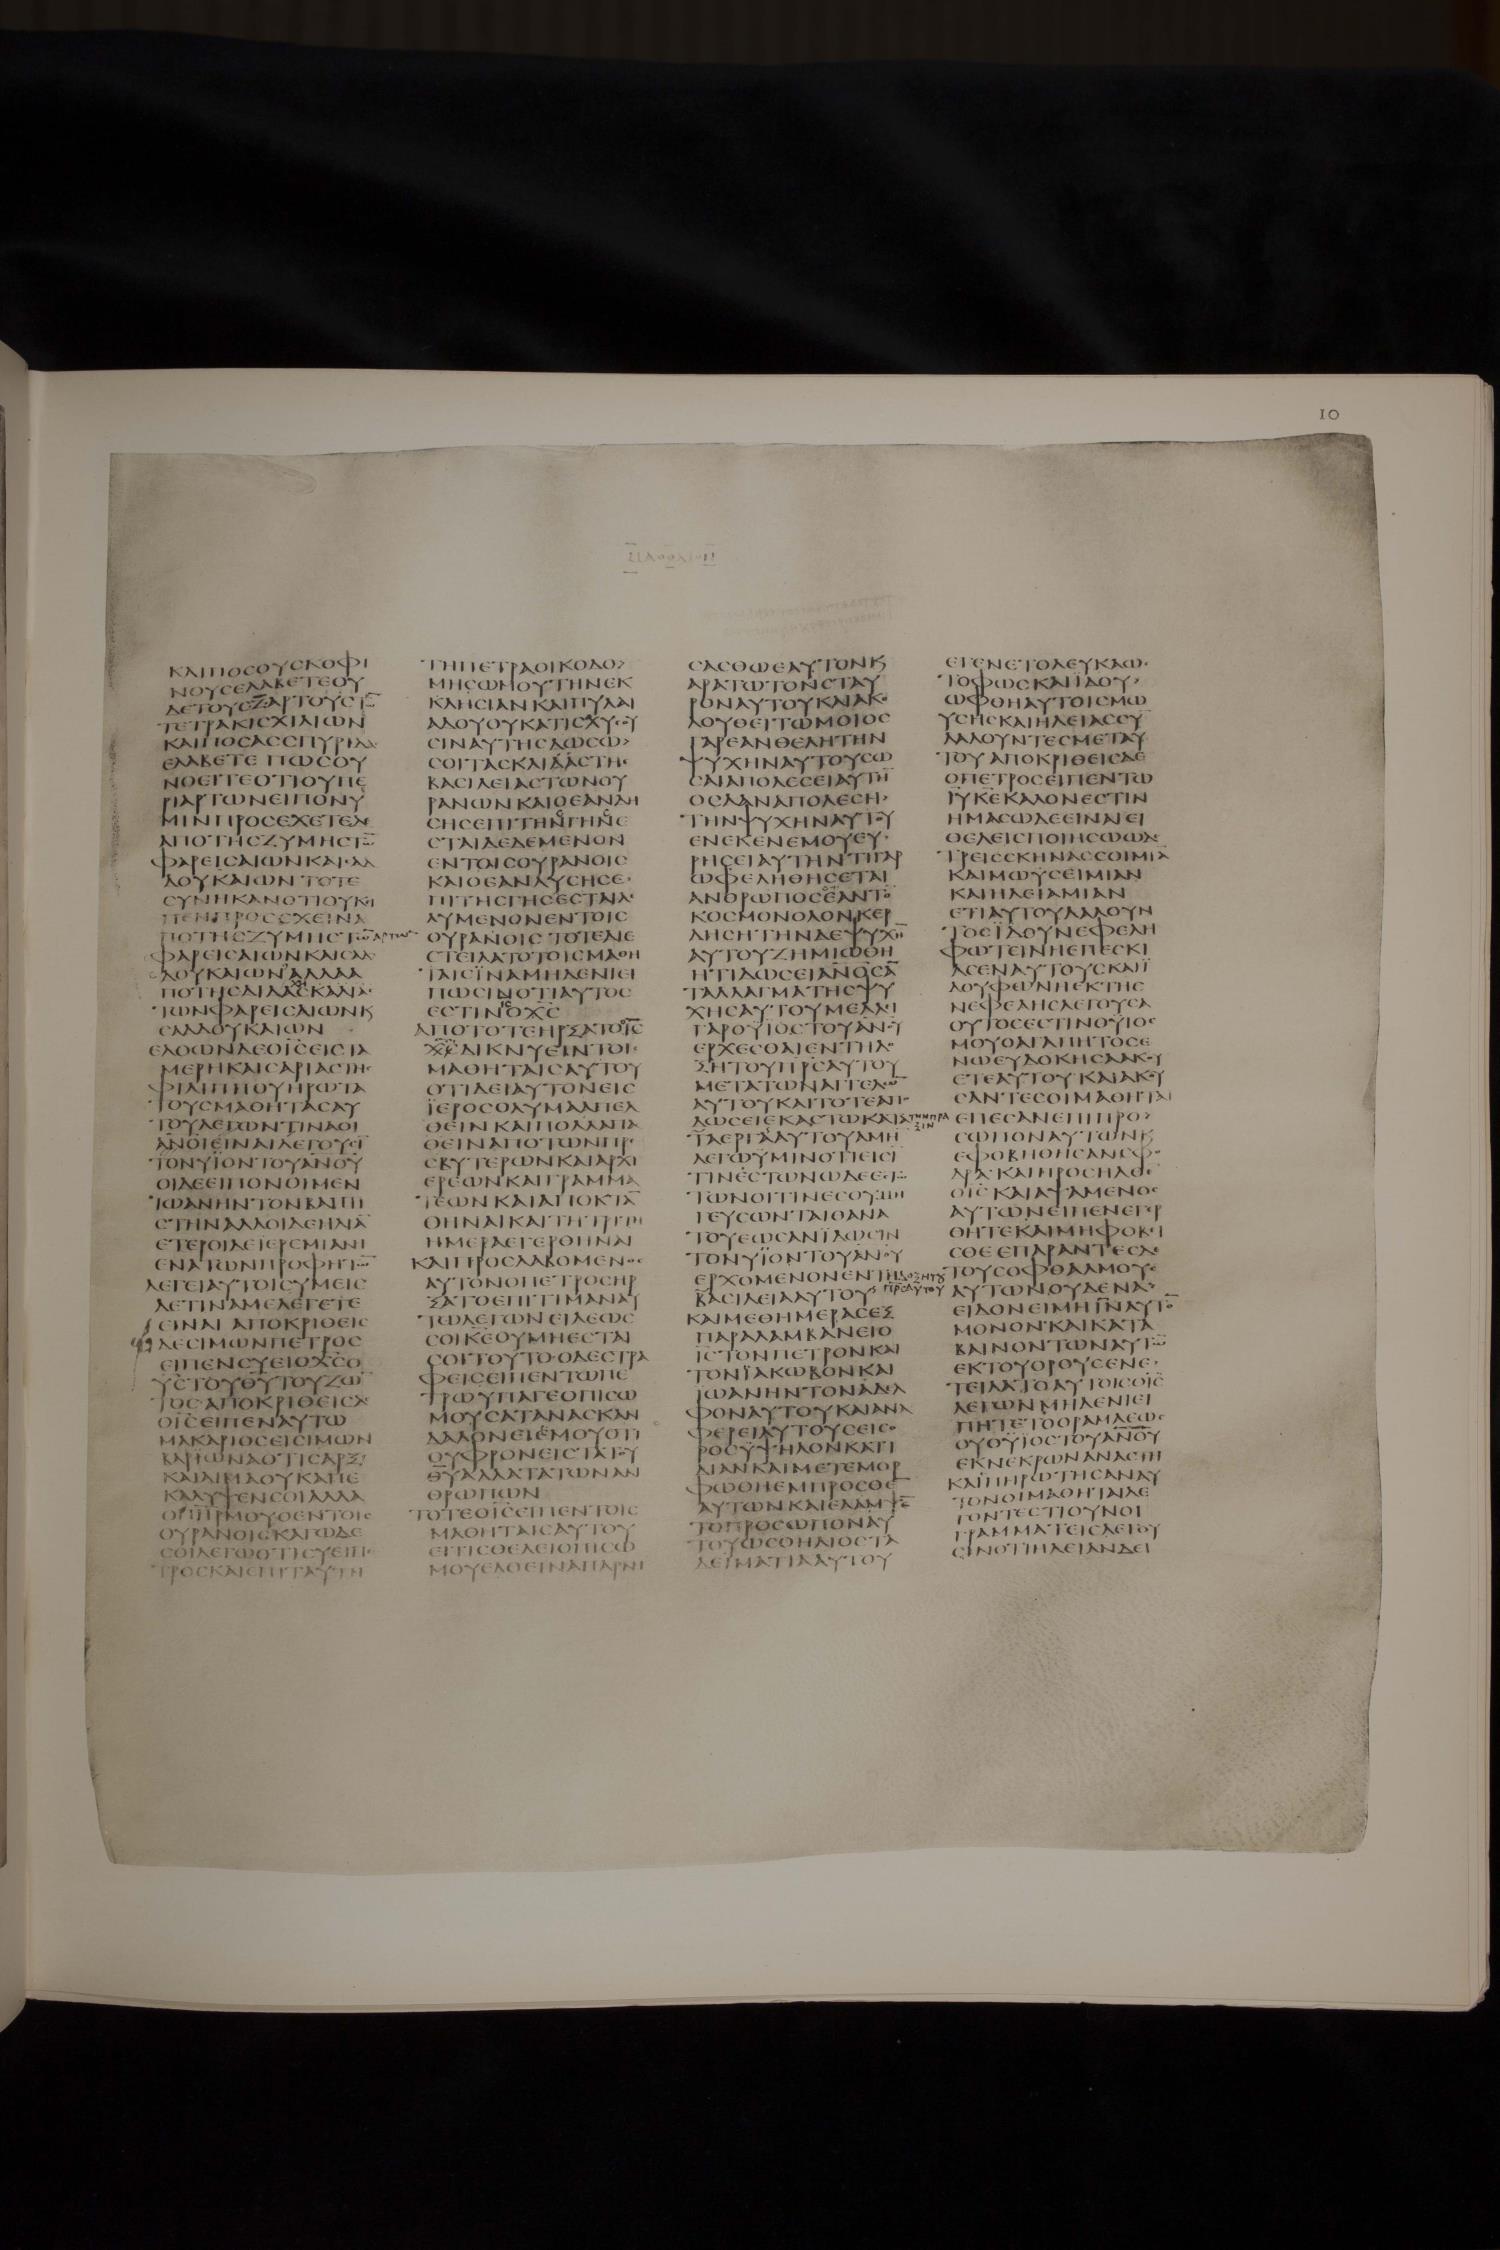 ΚΑΙΠΟϹΟΥϹΚΟΦΙ
ΝΟΥϹΕΛΑΒΕΤΕΟΥ
ΔΕΤΟΥϹΖΑΡΤΟΥϹΤΩ̅
ΤΕΤΡΑΚΙϹΧΙΛΙΩΝ
ΚΑΙΠΟϹΑϹϹΠΥΡΙΔΑϹ
ΕΛΑΒΕΤΕΠΩϹΟΥ
ΝΟΕΙΤΕΟΤΙΟΥΠΕ
ΡΙΑΡΤΩΝΕΙΠΟΝΥ
ΜΙΝΠΡΟϹΕΧΕΤΕΔΕ
ΑΠΟΤΗϹΖΥΜΗϹΤΩ̅
ΦΑΡΕΙϹΑΙΩΝΚΑΙϹΑΔ
ΔΟΥΚΑΙΩΝΤΟΤΕ
ϹΥΝΗΚΑΝΟΤΙΟΥΚΕΙ
ΠΕΝΠΡΟϹΕΧΕΙΝΑ
ΠΟΤΗϹΖΥΜΗϹΤΩ̅ΑΡΤΩΝ
ΦΑΡΕΙϹΑΙΩΝΚΑΙϹΑΔ
ΔΟΥΚΑΙΩΝΑΛΛΑΑ
ΠΟΤΗϹΔΙΔΑϹΚΑΛΙΑϹ
ΤΩΝΦΑΡΕΙϹΑΙΩΝΚ
ϹΑΔΔΟΥΚΑΙΩΝ
ΕΛΘΩΝΔΕΟΙ̅Ϲ̅ΕΙϹΤΑ
ΜΕΡΗΚΑΙϹΑΡΙΑϹΤΗϹ
ΦΙΛΙΠΠΟΥΗΡΩΤΑ
ΤΟΥϹΜΑΘΗΤΑϹΑΥ
ΤΟΥΛΕΓΩΝΤΙΝΑΟΙ
ΑΝΟΙΕΙΝΑΙΛΕΓΟΥϹΙ
ΤΟΝΥΪΟΝΤΟΥΑΝΟΥ
ΟΙΔΕΕΙΠΟΝΟΙΜΕΝ
ΙΩΑΝΗΝΤΟΝΒΑΠΤΙ
ϹΤΗΝΑΛΛΟΙΔΕΗΛΙΑ̅
ΕΤΕΡΟΙΔΕΪΕΡΕΜΙΑΝΗ
ΕΝΑΤΩΝΠΡΟΦΗΤΩ̅
ΛΕΓΕΙΑΥΤΟΙϹΥΜΕΙϹ
ΔΕΤΙΝΑΜΕΛΕΓΕΤΕ
ΕΙΝΑΙΑΠΟΚΡΙΘΕΙϹ
ΔΕϹΙΜΩΝΠΕΤΡΟϹ
ΕΙΠΕΝϹΥΕΙΟΧ̅Ϲ̅Ο
Υ̅Ϲ̅ΤΟΥΘ̅Υ̅ΤΟΥΖΩ̅
ΤΟϹΑΠΟΚΡΙΘΕΙϹΔΕ
ΟΙ̅Ϲ̅ΕΙΠΕΝΑΥΤΩ
ΜΑΚΑΡΙΟϹΕΙϹΙΜΩΝ
ΒΑΡΙΩΝΑΟΤΙϹΑΡΞ
ΚΑΙΑΙΜΑΟΥΚΑΠΕ
ΚΑΛΥΨΕΝϹΟΙΑΛΛΑ
ΟΠ̅Η̅Ρ̅ΜΟΥΟΕΝΤΟΙϹ
ΟΥΡΑΝΟΙϹΚΑΓΩΔΕ
ϹΟΙΛΕΓΩΟΤΙϹΥΕΙΠΕ
ΤΡΟϹΚΑΙΕΠΙΤΑΥΤΗ
ΤΗΠΕΤΡΑΟΙΚΟΔΟ
ΜΗϹΩΜΟΥΤΗΝΕΚ
ΚΛΗϹΙΑΝΚΑΙΠΥΛΑΙ
ΑΔΟΥΟΥΚΑΤΙϹΧΥϹΟΥ
ϹΙΝΑΥΤΗϹΔΩϹΩ
ϹΟΙΤΑϹΚΛΙΔΑϹΤΗϹ
ΒΑϹΙΛΕΙΑϹΤΩΝΟΥ
ΡΑΝΩΝΚΑΙΟΕΑΝΔΗ
ϹΗϹΕΠΙΤΗΝΓΗΝΕ
ϹΤΑΙΔΕΔΕΜΕΝΟΝ
ΕΝΤΟΙϹΟΥΡΑΝΟΙϹ
ΚΑΙΟΕΑΝΛΥϹΗϹΕ
ΠΙΤΗϹΓΗϹΕϹΤΑΙΛΕ
ΛΥΜΕΝΟΝΕΝΤΟΙϹ
ΟΥΡΑΝΟΙϹΤΟΤΕΔΙΕ
ϹΤΕΙΛΑΤΟΤΟΙϹΜΑΘΗ
ΤΑΙϹΪΝΑΜΗΔΕΝΙΕΙ
ΠΩϹΙΝΟΤΙΑΥΤΟϹ
ΕϹΤΙΝΟΧ̅Ϲ̅
ΑΠΟΤΟΤΕΗΡΞΑΤΟΙ̅Ϲ̅
Χ̅Ϲ̅ΔΙΚΝΥΕΙΝΤΟΙϹ
ΜΑΘΗΤΑΙϹΑΥΤΟΥ
ΟΤΙΔΕΙΑΥΤΟΝΕΙϹ
ΪΕΡΟϹΟΛΥΜΑΑΠΕΛ
ΘΕΙΝΚΑΙΠΟΛΛΑΠΑ
ΘΕΙΝΑΠΟΤΩΝΠΡΕ
ϹΒΥΤΕΡΩΝΚΑΙΑΡΧΙ
ΕΡΕΩΝΚΑΙΓΡΑΜΜΑ
ΤΕΩΝΚΑΙΑΠΟΚΤΑ̅
ΘΗΝΑΙΚΑΙΤΗΤΡΙΤΗ
ΗΜΕΡΑΕΓΕΡΘΗΝΑΙ
ΚΑΙΠΡΟϹΛΑΒΟΜΕΝΟϹ
ΑΥΤΟΝΟΠΕΤΡΟϹΗΡ
ΞΑΤΟΕΠΙΤΙΜΑΝΑΥ
ΤΩΛΕΓΩΝΕΙΛΕΩϹ
ϹΟΙΚ̅Ε̅ΟΥΜΗΕϹΤΑΙ
ϹΟΙΤΟΥΤΟΟΔΕϹΤΡΑ
ΦΕΙϹΕΙΠΕΝΤΩΠΕ
ΤΡΩΥΠΑΓΕΟΠΙϹΩ
ΜΟΥϹΑΤΑΝΑϹΚΑΝ
ΔΑΛΟΝΕΙΕΜΟΥΟΤΙ
ΟΥΦΡΟΝΕΙϹΤΑΤΟΥ
Θ̅Υ̅ΑΛΛΑΤΑΤΩΝΑΝ
ΘΡΩΠΩΝ
ΤΟΤΕΟΙ̅Ϲ̅ΕΙΠΕΝΤΟΙϹ
ΜΑΘΗΤΑΙϹΑΥΤΟΥ
ΕΙΤΙϹΘΕΛΕΙΟΠΙϹΩ
ΜΟΥΕΛΘΕΙΝΑΠΑΡΝΗ
ϹΑϹΘΩΕΑΥΤΟΝΚ
ΑΡΑΤΩΤΟΝϹΤΑΥ
ΡΟΝΑΥΤΟΥΚΑΙΑΚΟ
ΛΟΥΘΕΙΤΩΜΟΙΟϹ
ΓΑΡΕΑΝΘΕΛΗΤΗΝ
ΨΥΧΗΝΑΥΤΟΥϹΩ
ϹΑΙΑΠΟΛΕϹΕΙΑΥΤΗ̅
ΟϹΔΑΝΑΠΟΛΕϹΗ
ΤΗΝΨΥΧΗΝΑΥΤΟΥ
ΕΝΕΚΕΝΕΜΟΥΕΥ
ΡΗϹΕΙΑΥΤΗΝΤΙΓΑΡ
ΩΦΕΛΗΘΗϹΕΤΑΙ
ΑΝΘΡΩΠΟϹΕΑΝΤΟ̅
ΚΟϹΜΟΝΟΛΟΝΚΕΡ
ΔΗϹΗΤΗΝΔΕΨΥΧΗ̅
ΑΥΤΟΥΖΗΜΙΩΘΗ
ΗΤΙΔΩϹΕΙΑΝΟϹΑ̅
ΤΑΛΛΑΓΜΑΤΗϹΨΥ
ΧΗϹΑΥΤΟΥΜΕΛΛΙ
ΓΑΡΟΥΪΟϹΤΟΥΑΝΟΥ
ΕΡΧΕϹΘΑΙΕΝΤΗΔΟ
ΞΗΤΟΥΠ̅Ρ̅Ϲ̅ΑΥΤΟΥ
ΜΕΤΑΤΩΝΑΓΓΕΛΩ̅
ΑΥΤΟΥΚΑΙΤΟΤΕΑΠΟ
ΔΩϹΕΙΕΚΑϹΤΩΚΑΤΑ
ΤΗΝΠΡΑ
ΞΙΝ
ΤΑΕΡΓΑΑΥΤΟΥΑΜΗ
ΛΕΓΩΥΜΙΝΟΤΙΕΙϹΙ
ΤΙΝΕϹΤΩΝΩΔΕΕϹΤΩ
ΤΩΝΟΙΤΙΝΕϹΟΥΜΗ
ΓΕΥϹΩΝΤΑΙΘΑΝΑ
ΤΟΥΕΩϹΑΝΪΔΩϹΙΝ
ΤΟΝΥΪΟΝΤΟΥΑΝΟΥ
ΕΡΧΟΜΕΝΟΝΕΝΤΗ
ΔΟΞΗΤΟΥ
Π̅Ρ̅Ϲ̅ΑΥΤΟΥ
ΒΑϹΙΛΕΙΑΑΥΤΟΥ
ΚΑΙΜΕΘΗΜΕΡΑϹΕΞ
ΠΑΡΑΛΑΜΒΑΝΕΙΟ
Ι̅Ϲ̅ΤΟΝΠΕΤΡΟΝΚΑΙ
ΤΟΝΪΑΚΩΒΟΝΚΑΙ
ΙΩΑΝΗΝΤΟΝΑΔΕΛ
ΦΟΝΑΥΤΟΥΚΑΙΑΝΑ
ΦΕΡΕΙΑΥΤΟΥϹΕΙϹΟ
ΡΟϹΥΨΗΛΟΝΚΑΤΙ
ΔΙΑΝΚΑΙΜΕΤΕΜΟΡ
ΦΩΘΗΕΜΠΡΟϹΘΕ
ΑΥΤΩΝΚΑΙΕΛΑΜΨΕ̅
ΤΟΠΡΟϹΩΠΟΝΑΥ
ΤΟΥΩϹΟΗΛΙΟϹΤΑ
ΔΕΙΜΑΤΙΑΑΥΤΟΥ
ΕΓΕΝΕΤΟΛΕΥΚΑΩϹ
ΤΟΦΩϹΚΑΙΪΔΟΥ
ΩΦΘΗΑΥΤΟΙϹΜΩ
ΥϹΗϹΚΑΙΗΛΕΙΑϹϹΥ̅
ΛΑΛΟΥΝΤΕϹΜΕΤΑΥ
ΤΟΥΑΠΟΚΡΙΘΕΙϹΔΕ
ΟΠΕΤΡΟϹΕΙΠΕΝΤΩ
Ι̅Υ̅Κ̅Ε̅ΚΑΛΟΝΕϹΤΙΝ
ΗΜΑϹΩΔΕΕΙΝΑΙΕΙ
ΘΕΛΕΙϹΠΟΙΗϹΩΩΔΕ
ΤΡΕΙϹϹΚΗΝΑϹϹΟΙΜΙΑ̅
ΚΑΙΜΩΥϹΕΙΜΙΑΝ
ΚΑΙΗΛΕΙΑΜΙΑΝ
ΕΤΙΑΥΤΟΥΛΑΛΟΥΝ
ΤΟϹΪΔΟΥΝΕΦΕΛΗ
ΦΩΤΕΙΝΗΕΠΕϹΚΙ
ΑϹΕΝΑΥΤΟΥϹΚΑΙΪ
ΔΟΥΦΩΝΗΕΚΤΗϹ
ΝΕΦΕΛΗϹΛΕΓΟΥϹΑ
ΟΥΤΟϹΕϹΤΙΝΟΥΙΟϹ
ΜΟΥΟΑΓΑΠΗΤΟϹΕ
ΝΩΕΥΔΟΚΗϹΑΑΚΟΥ
ΕΤΕΑΥΤΟΥΚΑΙΑΚΟΥ
ϹΑΝΤΕϹΟΙΜΑΘΗΤΑΙ
ΕΠΕϹΑΝΕΠΙΠΡΟ
ϹΩΠΟΝΑΥΤΩΝΚ
ΕΦΟΒΗΘΗϹΑΝϹΦΟ
ΔΡΑΚΑΙΠΡΟϹΗΛΘΕ
ΟΙ̅Ϲ̅ΚΑΙΑΨΑΜΕΝΟϹ
ΑΥΤΩΝΕΙΠΕΝΕΓΕΡ
ΘΗΤΕΚΑΙΜΗΦΟΒΙ
ϹΘΕΕΠΑΡΑΝΤΕϹΔΕ
ΤΟΥϹΟΦΘΑΛΜΟΥϹ
ΑΥΤΩΝΟΥΔΕΝΑ
ΕΙΔΟΝΕΙΜΗΙ̅Ν̅ΑΥΤΟ̅
ΜΟΝΟΝΚΑΙΚΑΤΑ
ΒΑΙΝΟΝΤΩΝΑΥΤΩ̅
ΕΚΤΟΥΟΡΟΥϹΕΝΕ
ΤΕΙΛΑΤΟΑΥΤΟΙϹΟΙ̅Ϲ̅
ΛΕΓΩΝΜΗΔΕΝΙΕΙ
ΠΗΤΕΤΟΟΡΑΜΑΕΩϹ
ΟΥΟΥΪΟϹΤΟΥΑΝΟΥ
ΕΚΝΕΚΡΩΝΑΝΑϹΤΗ
ΚΑΙΕΠΗΡΩΤΗϹΑΝΑΥ
ΤΟΝΟΙΜΑΘΗΤΑΙΛΕ
ΓΟΝΤΕϹΤΙΟΥΝΟΙ
ΓΡΑΜΜΑΤΕΙϹΛΕΓΟΥ
ϹΙΝΟΤΙΗΛΕΙΑΝΔΕΙ
10